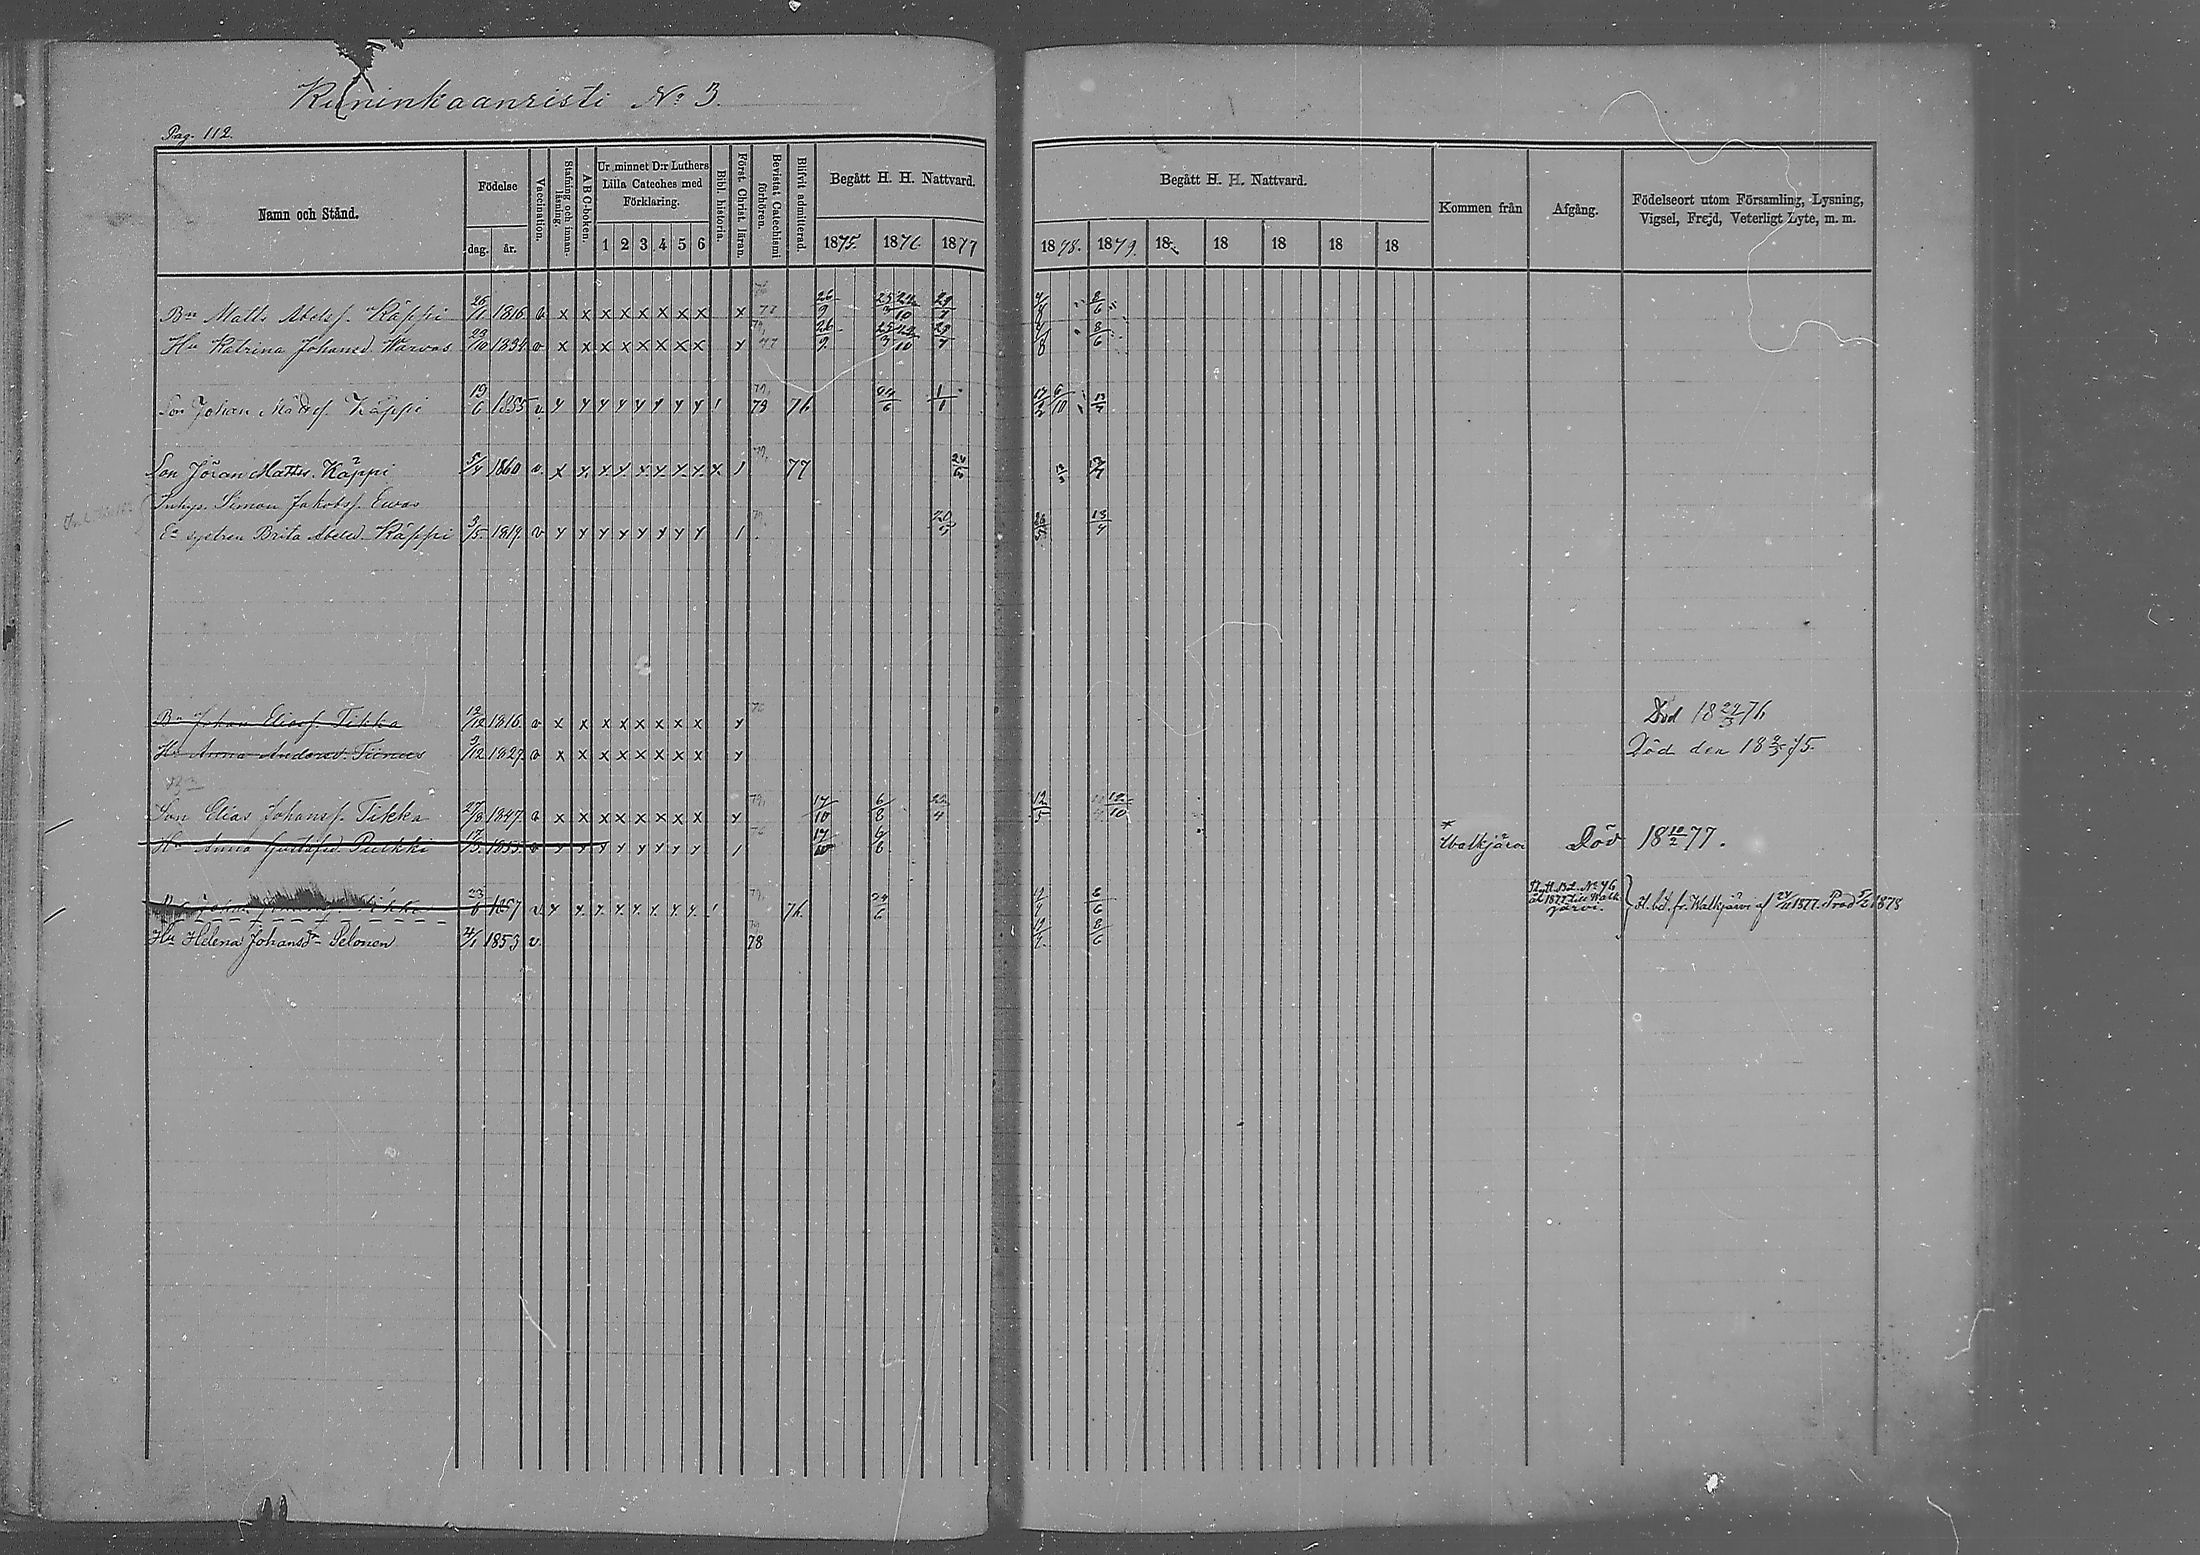 Kuninkaanristi No 3.
Pag. 112.
Namn och Stånd. Födelse dag. år. Vaccination. Stafning och innanläsning. A B C-boken. Ur minnet D:r Luthers Lilla Cateches med Förklaring. 1 2 3 4 5 6 Bibl. historia. Först. Christ. läran. Bevistat Catechismi förhören. Blifvit admitterad. Begått H. H. Nattvard. 1875. 1876. 1877
Begått H. H. Nattvard. 1878. 1879. 18 18 18 18 18 Kommen från Afgång. Födelseort utom Församling, Lysning, Vigsel, Frejd, Veterligt Lyte, m. m.
Bn Matts Abelsf. Käppi 26/1 1816 v x x x x x x x x x 77 26/9 25/3 22/10 29/4 8/6
Hu Katrina Johansd. Warvas 1834 v x x x x x x x x 77 26/9 25/3 22/10 29/4 8/6
Son Johan Mattsf. Käppi 19/6 1855 v 79 76 24/6 1/1 6/10 13/4
Son Jöran Matts. Käppi 5/4 1860 v. 77
Inhys. Simon Jakobsf. Ewas
Ea systren Brita Abelsd. Käppi 3/5 1819 v 26/5 13/4
Bn Johan Eliasf. Tikka 12/12 1816 v x x x x x x x x Död 18 22/3 76
Hu Anna Andersd. 9/12 1827 v x x x x x x x x Död den 18 2/3 75.
Bn
Son Elias Johansf. Tikka 27/3 1847 v x x x x x x x x 17/10 6/8 22/4 12/5 12/10
Hu Anna Gustafsd. Pukki 17/3 1853 v 17/10 6/8 Walkjärvi Död 18 10/2 77.
23/6 1857 v 76. 24/6 8/6 Flytt. Bl. No 46 år 1877 till Walkjärvi. H. bd. fr. Walkjärvi af 24/11 1877. Prod 5/2 1878
Hu Helena Johansd. Pelonen 4/1 1853 v 78 8/6